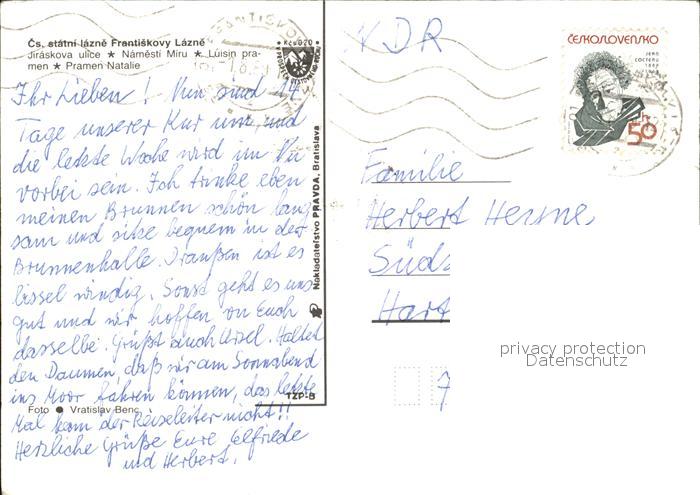 Čs. státní lázně Františkovy Lázně
Jiráskova ulice ★ Náměstí Míru ★ Luisin pra-
men ★ Pramen Natalie
Ihr Lieben! Nun sind 14
Tage unserer Kur um, und
die letzte Woche wird im Nu
vorbei sein. Ich trinke eben
meinen Brunnen schön lang
sam und sitze bequem in der
Brunnenhalle. Draußen ist es
bissel windig. Sonst geht es uns
gut und wir hoffen von Euch
dasselbe. Grüßt auch Ursel. Haltet
den Daumen, daß wir am Sonnabend
ins Moor fahren können, das letzte
Mal kam der Reiseleiter nicht!!
Herzliche Grüße Eure Elfriede
und Herbert.
Foto ● Vratislav Benc
TZP-B
Nakladateľstvo PRAVDA, Bratislava
Kčs 0,20
NDR
ČESKOSLOVENSKO
JEAN
COCTEAU
1889
1963
50
Familie
Herbert
Süd
Hart
7
privacy protection
Datenschutz